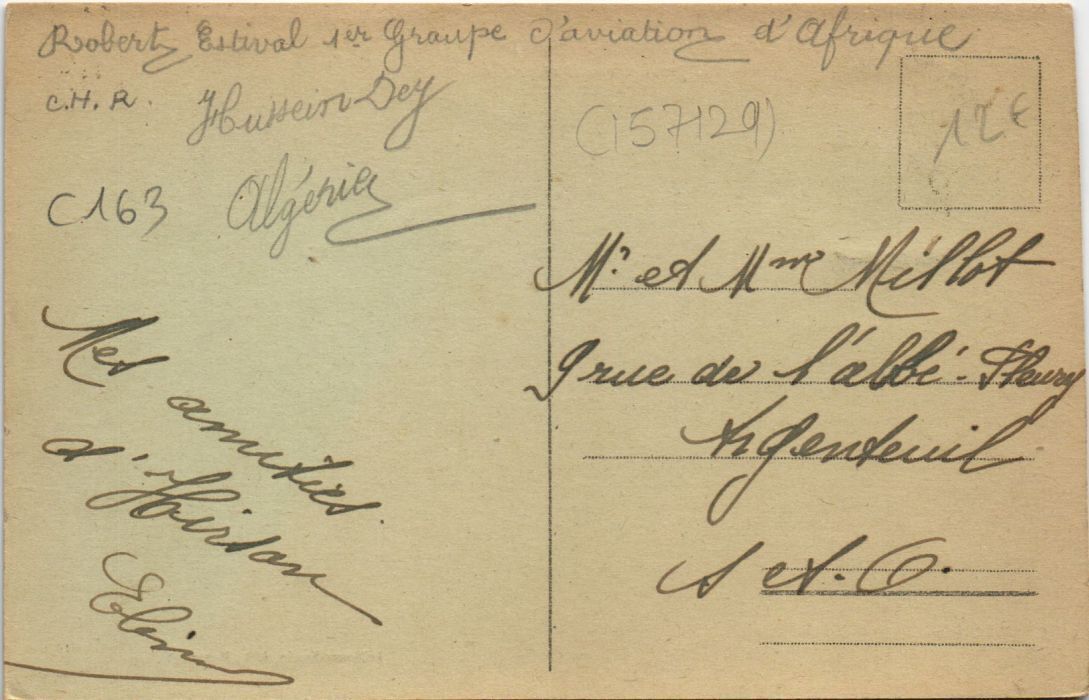 Robert Estival 1er Groupe d'aviation d'Afrique
C.H.R. Hussein-Dey
Algérie
C163
(157129)
12€
Mes amitiés
d'Hirson
Mr et Mme Millot
9 rue de l'abbé-Fleury
Argenteuil
S et. O.